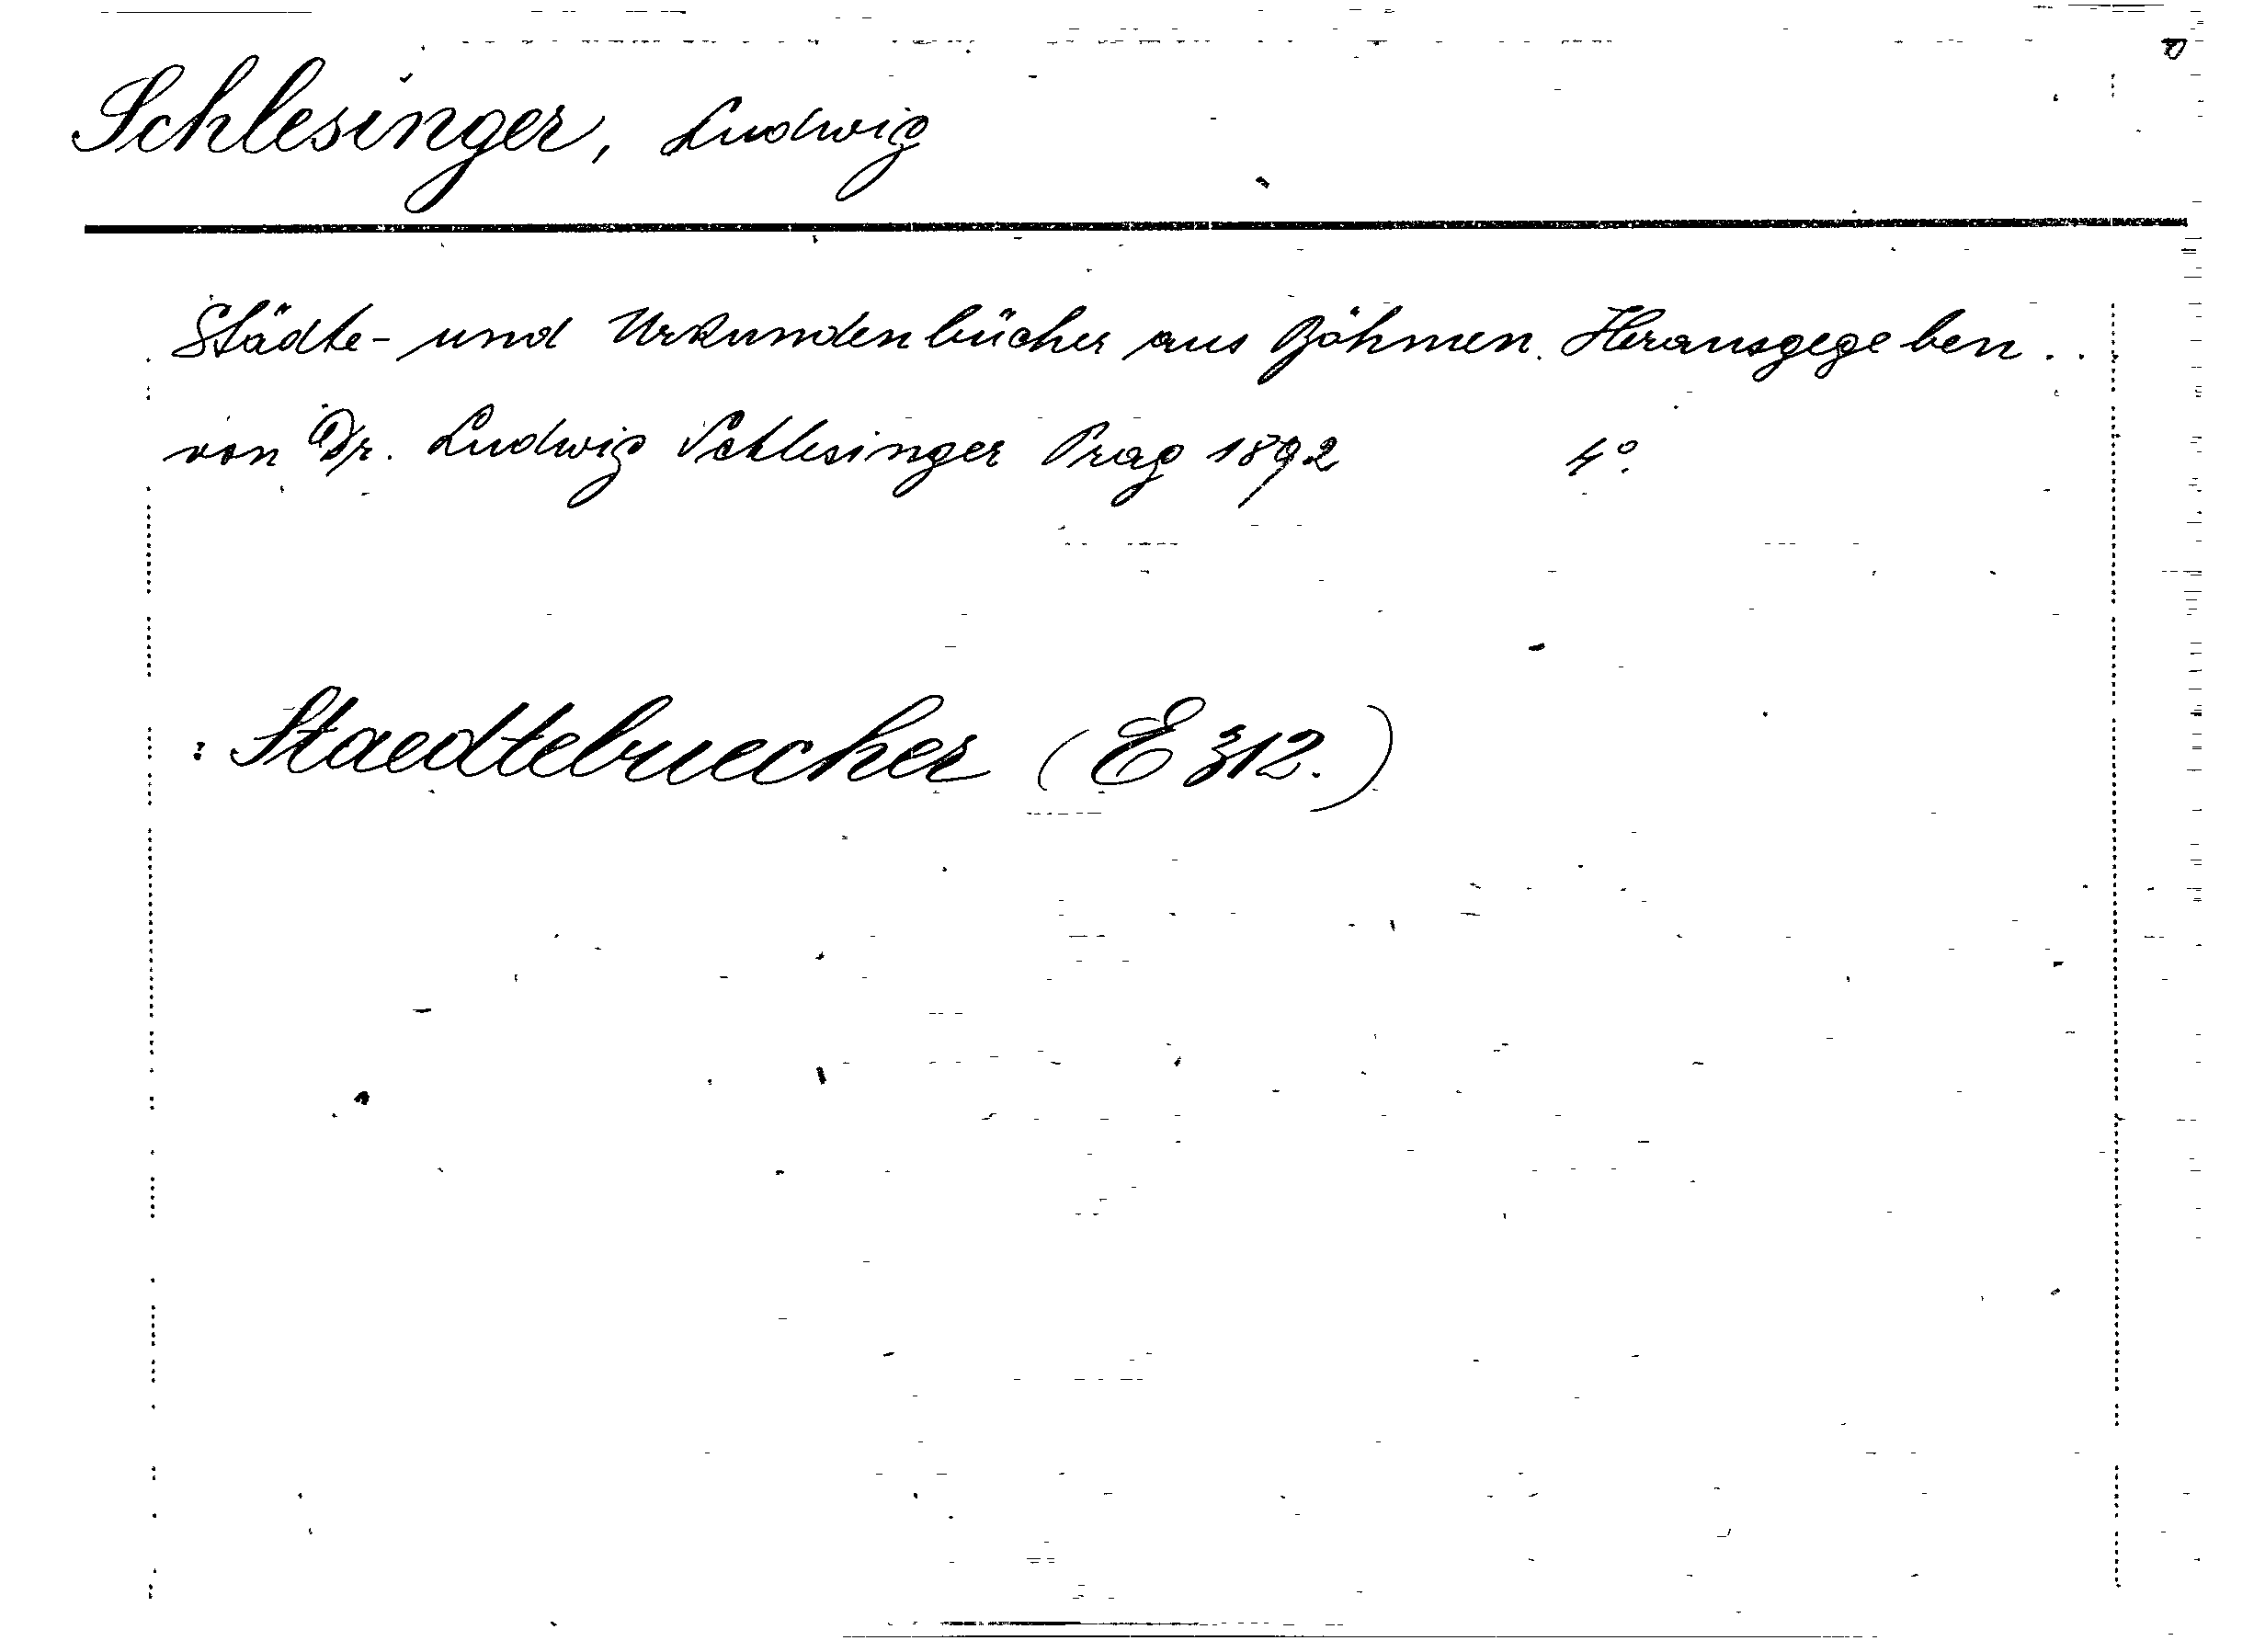 Schlesinger, Ludwig
Städte- und Urkundenbücher aus Böhmen. Herausgegeben..
von Dr. Ludwig Schlesinger Prag 1892 4°.
: Staedtebuecher (E 312.)